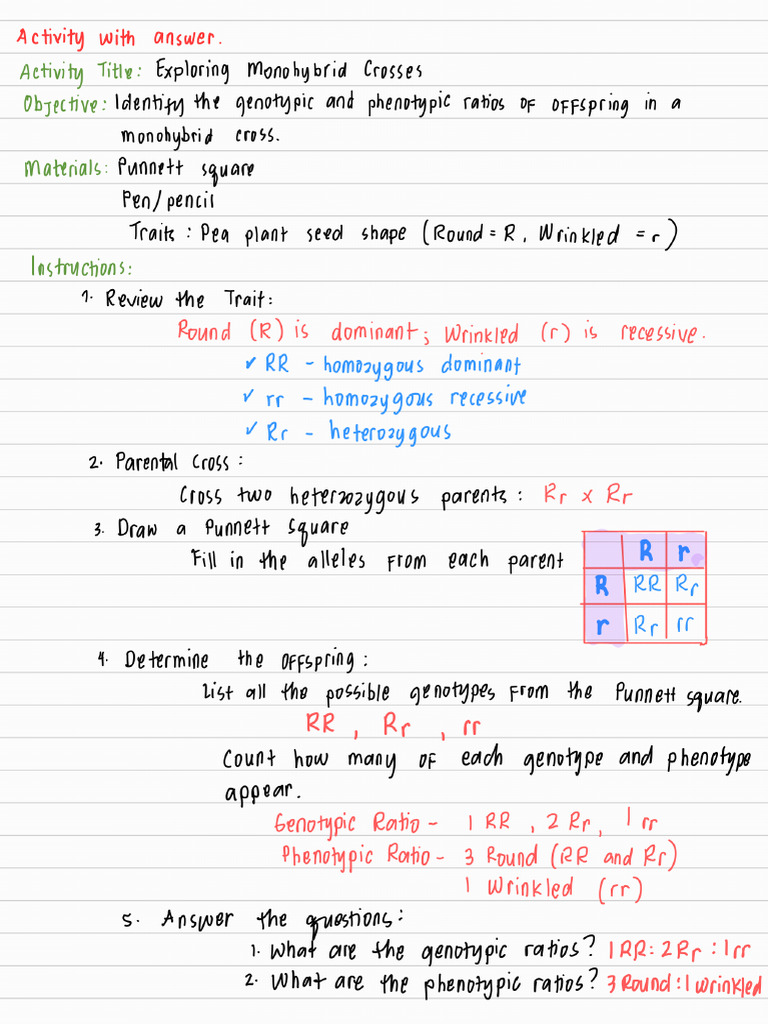 Activity with answer.
Activity Title: Exploring Monohybrid Crosses
Objective: Identify the genotypic and phenotypic ratios of offspring in a
monohybrid cross.
Materials: Punnett square
Pen/pencil
Traits: Pea plant seed shape (Round = R, Wrinkled = r)
Instructions:
1. Review the Trait:
Round (R) is dominant; Wrinkled (r) is recessive.
✓ RR - homozygous dominant
✓ rr - homozygous recessive
✓ Rr - heterozygous
2. Parental Cross:
Cross two heterzozygous parents: Rr x Rr
3. Draw a Punnett Square
Fill in the alleles from each parent
R r
R RR Rr
r Rr rr
4. Determine the offspring:
List all the possible genotypes from the Punnett square.
RR, Rr, rr
Count how many of each genotype and phenotype
appear.
Genotypic Ratio - 1 RR, 2 Rr, 1 rr
Phenotypic Ratio - 3 Round (RR and Rr)
1 Wrinkled (rr)
5. Answer the questions:
1. What are the genotypic ratios? 1 RR: 2 Rr : 1 rr
2. What are the phenotypic ratios? 3 Round : 1 wrinkled